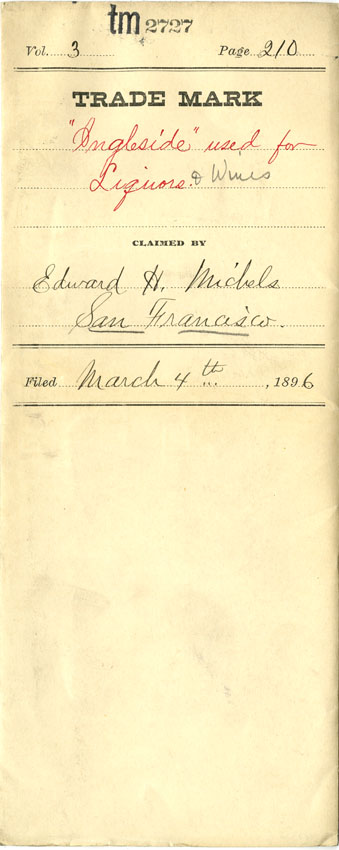 tm 2727
Vol. 3 Page 210
TRADE MARK
"Ingleside" used for
Liquors. & Wines
CLAIMED BY
Edward H. Michels
San Francisco.
Filed March 4th, 1896